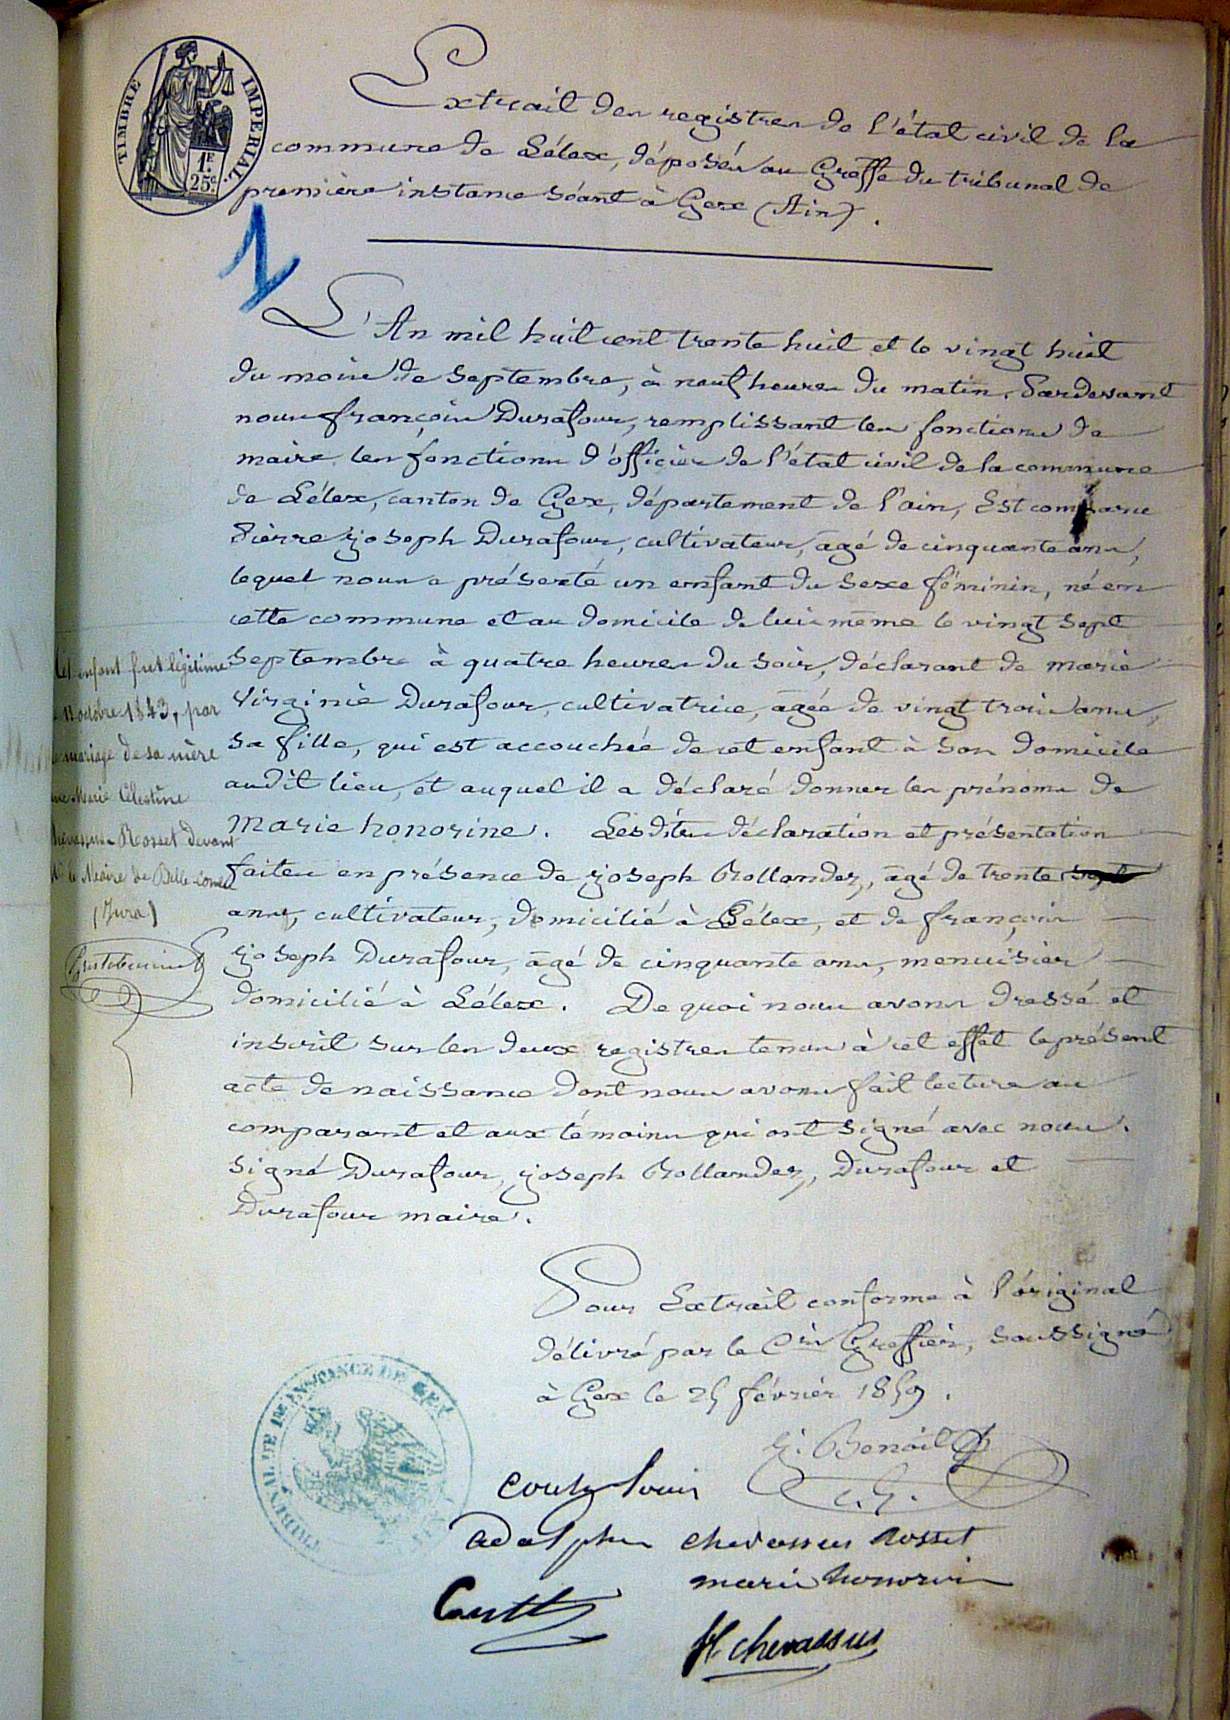 TIMBRE IMPERIAL.
1F.
25c.
Extrait des registres de l'état civil de la
commune de Lélex, déposés au Greffe du tribunal de
première instance séant à Gex (Ain).
1
L'An mil huit cent trente huit et le vingt huit
du mois de septembre, à neuf heures du matin. Pardevant
nous françois Durafour, remplissant les fonctions de
maire les fonctions d'officier de l'état civil de la commune
de Lélex, canton de Gex, département de l'ain, Est comparu
Pierre joseph Durafour, cultivateur, agé de cinquante ans,
lequel nous a présenté un enfant du sexe féminin, né en
cette commune et au domicile de lui même le vingt sept
septembre à quatre heures du soir, déclarant de marie
Virginie Durafour, cultivatrice, agée de vingt trois ans,
sa fille, qui est accouchée de cet enfant à son domicile
audit lieu, et auquel il a déclaré donner les prénoms de
Marie honorine. Lesdites déclaration et présentation
faites en présence de joseph Rollandez, agé de trente sept
ans, cultivateur, domicilié à Lélex, et de françois
joseph Durafour, agé de cinquante ans, menuisier
domicilié à Lélex. De quoi nous avons dressé et
inscrit sur les deux registres tenus à cet effet le présent
acte de naissance dont nous avons fait lecture au
comparant et aux témoins qui ont signé avec nous.
signé Durafour, joseph Rollandez, Durafour et
Durafour maire.
enfant fut légitimé
octobre 1843, par
mariage de sa mère
Marie Célestine
Chevassus-Rosset devant
le Maire de Belle-combe
(Jura)
Pour Extrait conforme à l'original
délivré par le Cis Greffier, soussigné
à Gex le 25 février 1859.
j. Benoit
c. G.
TRIBUNAL DE 1re INSTANCE DE GEX
coutz louis
adolphe chevassus rosset
marie honorine
Coutt
fr chevassus